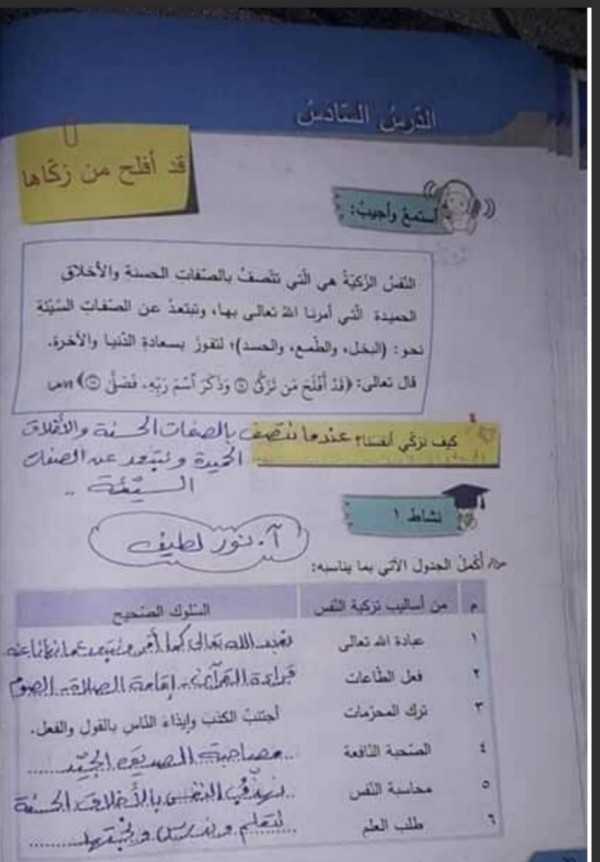 الدّرسُ السّادسُ
قد أفلح من زكّاها
أستمعُ وأجيبُ:
النّفسُ الزّكيّةُ هي الّتي تتّصفُ بالصّفاتِ الحسنةِ والأخلاقِ
الحميدةِ الّتي أمرنا اللهُ تعالى بها، وتبتعدُ عن الصّفاتِ السّيّئة
نحو: (البخل، والطّمع، والحسد)؛ لتفوزَ بسعادةِ الدّنيا والآخرة.
قال تعالى: ﴿قَدْ أَفْلَحَ مَن تَزَكَّىٰ ۝ وَذَكَرَ ٱسْمَ رَبِّهِۦ فَصَلَّىٰ ۝﴾
كيف نزكّي أنفسنا؟ عندما نتصف بالصفات الحسنة والأخلاق
الحميدة ونبتعد عن الصفات
السيّئة ..
نشاط ١
آ. نور لطيف
أكملُ الجدول الآتي بما يناسبه:
م من أساليب تزكية النّفس السّلوك الصّحيح
١ عبادة الله تعالى نعبد الله تعالى كما أمر ونبتعد عما نهانا عنه
٢ فعل الطّاعات قراءة القرآن - إقامة الصلاة - الصوم
٣ ترك المحرّمات أجتنبُ الكذبَ وإيذاءَ النّاسِ بالقول والفعل.
٤ الصّحبة النّافعة مصاحبة الصديق الجيّد
٥ محاسبة النّفس نهذّب النفس بالأخلاق الحسنة
٦ طلب العلم نتعلم وندرس